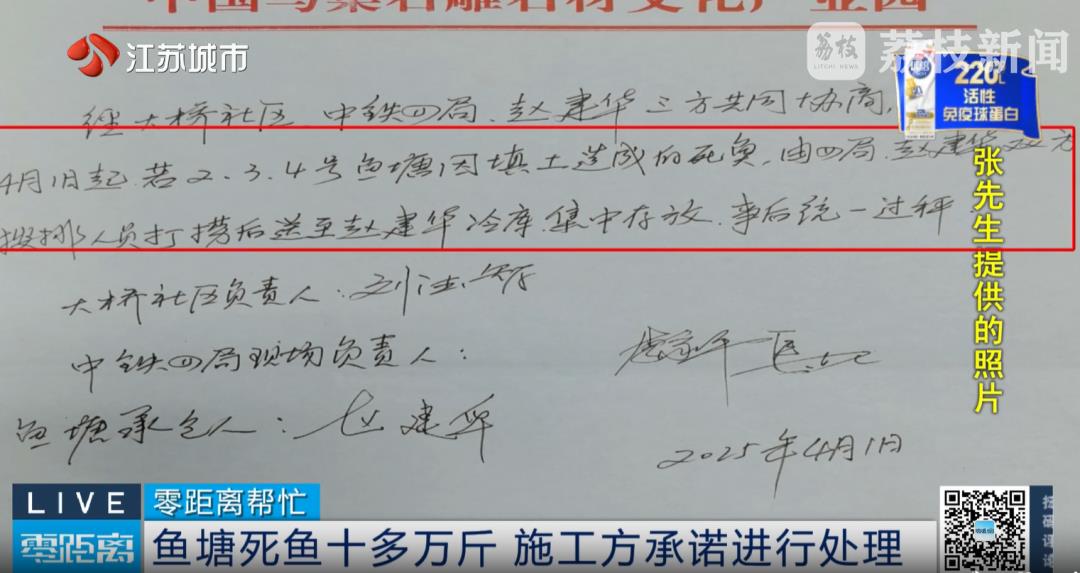 中国乌桑石雕石材文化产业园
江苏城市
荔枝
LITCHI NEWS
荔枝新闻
220
活性
免疫球蛋白
经大桥社区 中铁四局、赵建华三方共同协商,
4月1日起 若2.3.4号鱼塘因填土造成的死鱼,由四局、赵建华双方
安排人员打捞后送至赵建华冷库集中存放、事后统一过秤
大桥社区负责人:
中铁四局现场负责人:
鱼塘承包人:赵建华
2025年4月1日
张先生提供的照片
LIVE
零距离帮忙
零距离
鱼塘死鱼十多万斤 施工方承诺进行处理
扫码评论